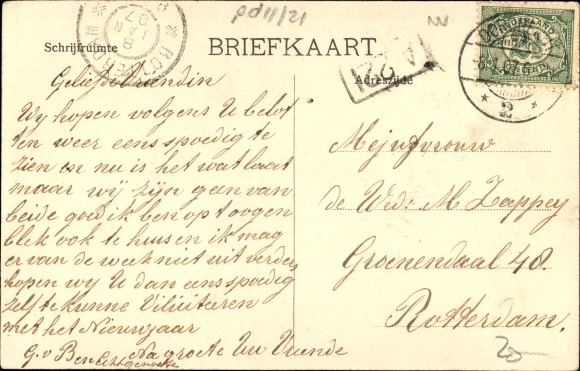 pd11/21
Schrijfruimte
BRIEFKAART
Adreszijde
NEDERLAND
ROTTERDAM
Geliefde Vrundin
Wy hopen volgens U belof
ten weer eens spoedig te
zien en nu is het wat laat
maar wij zijn geen van
beide goed ik ben op t oogen
blik ook te huis en ik mag
er van de week niet uit verder
hopen wy U dan eens spoedig
zelf te kunne Viliciteren
met het Nieuwjaar
Na groete Uw Vriende
G. v Ben Echtgenoote
Mejufvrouw
de Wed: M Zappey
Groenendaal 48.
Rotterdam.
20